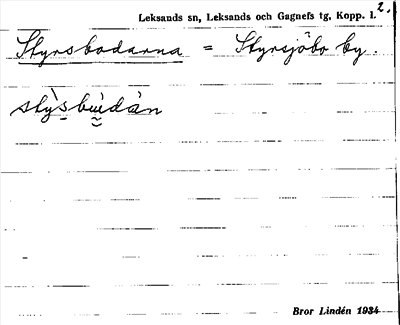 Leksands sn, Leksands och Gagnefs tg, Kopp. l. 2.
Styrsbodarna = Styrsjöbo by.
stỳsbùdàn
Bror Lindén 1934